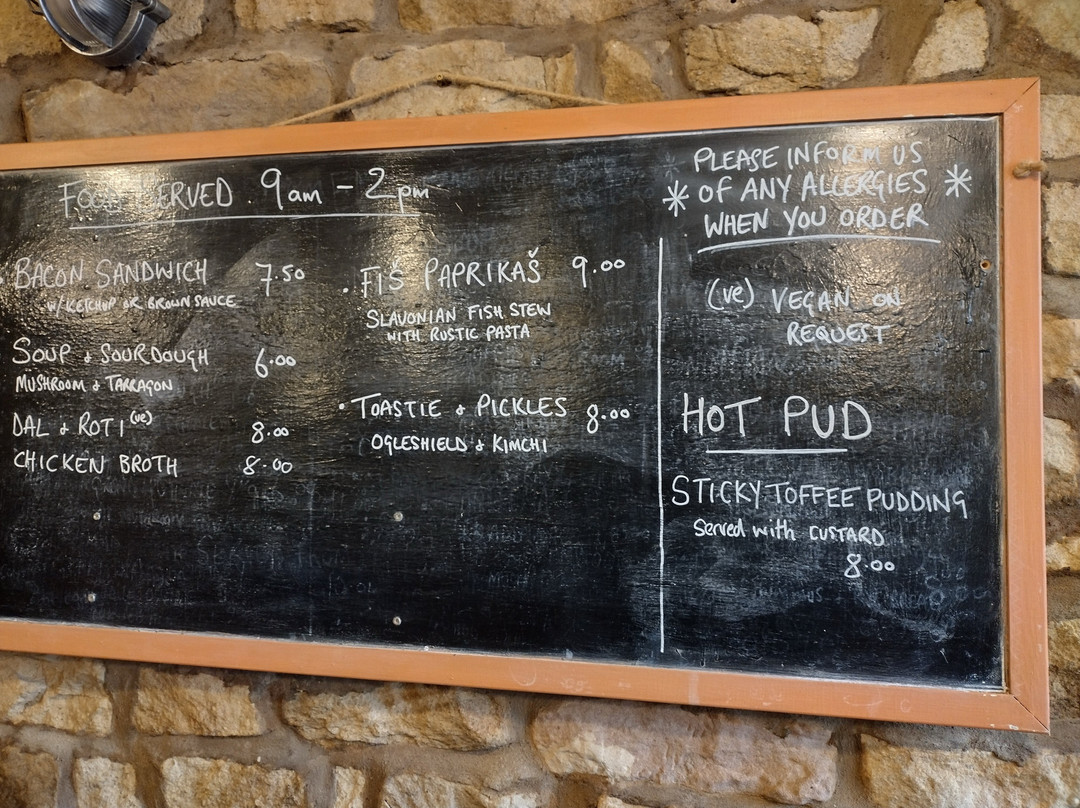 FOOD SERVED. 9am - 2pm
BACON SANDWICH 7.50
W/ KETCHUP OR BROWN SAUCE
SOUP & SOURDOUGH 6.00
MUSHROOM & TARRAGON
DAL & ROTI (ve) 8.00
CHICKEN BROTH 8.00
• FIŠ PAPRIKAŠ 9.00
SLAVONIAN FISH STEW
WITH RUSTIC PASTA
• TOASTIE & PICKLES 8.00
OGLESHIELD & KIMCHI
PLEASE INFORM US
* OF ANY ALLERGIES *
WHEN YOU ORDER
(ve) VEGAN ON
REQUEST
HOT PUD
STICKY TOFFEE PUDDING
Served with CUSTARD
8.00